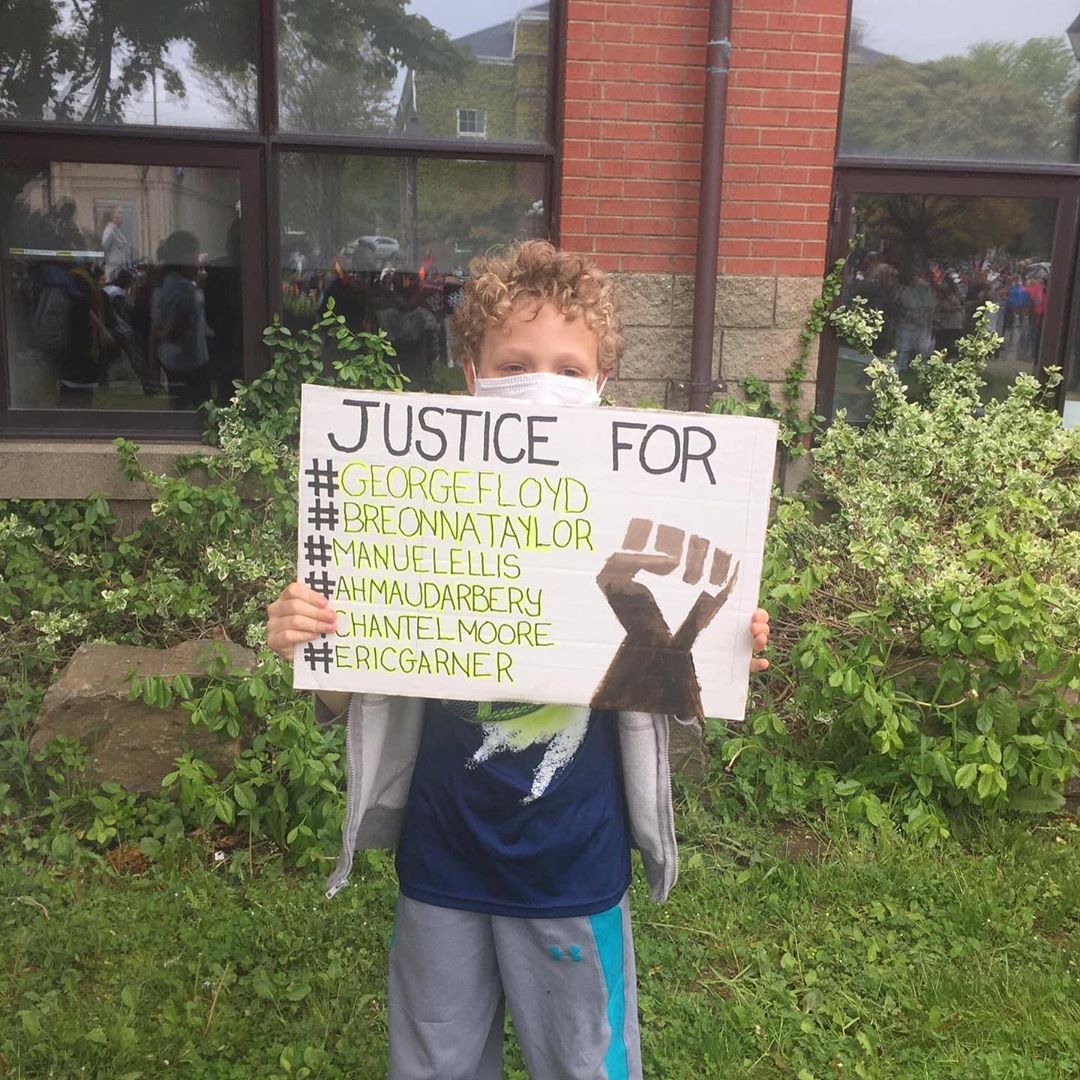 JUSTICE FOR
#GEORGEFLOYD
#BREONNATAYLOR
#MANUELELLIS
#AHMAUDARBERY
CHANTELMOORE
#ERICGARNER